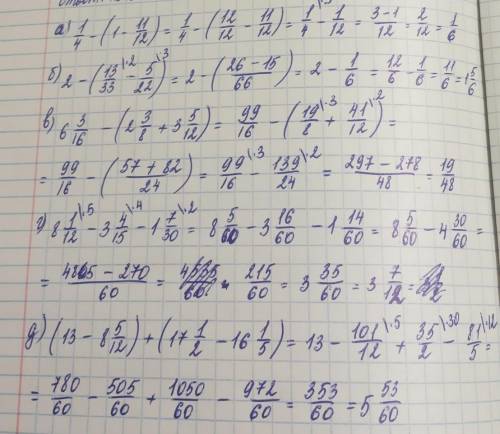 а) 1/4 - (1 - 11/12) = 1/4 - (12/12 - 11/12) = 1/4\·3 - 1/12 = 3-1/12 = 2/12 = 1/6
б) 2 - (13/33\·2 - 5/22\·3) = 2 - (26-15/66) = 2 - 1/6 = 12/6 - 1/6 = 11/6 = 1 5/6
в) 6 3/16 - (2 3/8 + 3 5/12) = 99/16 - (19/8\·3 + 41/12\·2) =
= 99/16 - (57+82/24) = 99/16\·3 - 139/24\·2 = 297-278/48 = 19/48
г) 8 1/12\·5 - 3 4/15\·4 - 1 7/30\·2 = 8 5/60 - 3 16/60 - 1 14/60 = 8 5/60 - 4 30/60 =
= 485-270/60 = 215/60 = 3 35/60 = 3 7/12
д) (13 - 8 5/12) + (17 1/2 - 16 1/5) = 13 - 101/12\·5 + 35/2\·30 - 81/5\·12 =
= 780/60 - 505/60 + 1050/60 - 972/60 = 353/60 = 5 53/60